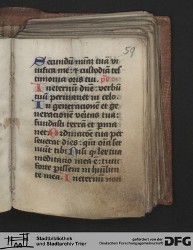 59
Secundum miam tua vi
vifica me: et custodia tes
timonia oris tui.
In eternum dne: verbu
tuu permanet in celo.
In generatione et ge
neratione veritas tua:
fundasti terra et perma
net. Ordinatione tua per
severat dies: qm oia ser
viunt tibi. Nisi q lex tua
meditatio mea e: tunc
forte perissem in humilita
te mea. In eternum non
Stadtbibliothek
und Stadtarchiv Trier
gefördert von der
Deutschen Forschungsgemeinschaft
DFG